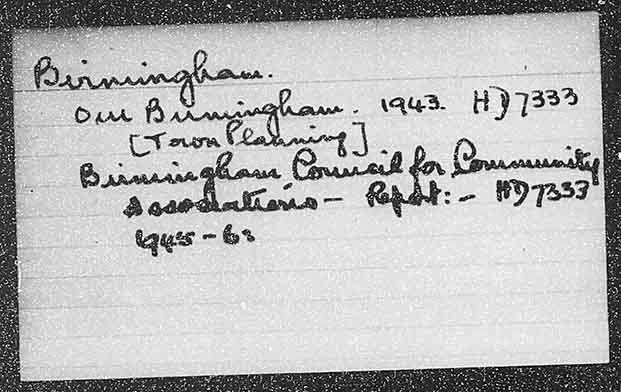 Birmingham.
Our Birmingham. 1943. HD7333
[Town Planning]
Birmingham Council for Community
Associations - Report: - HD7333
1945-6: